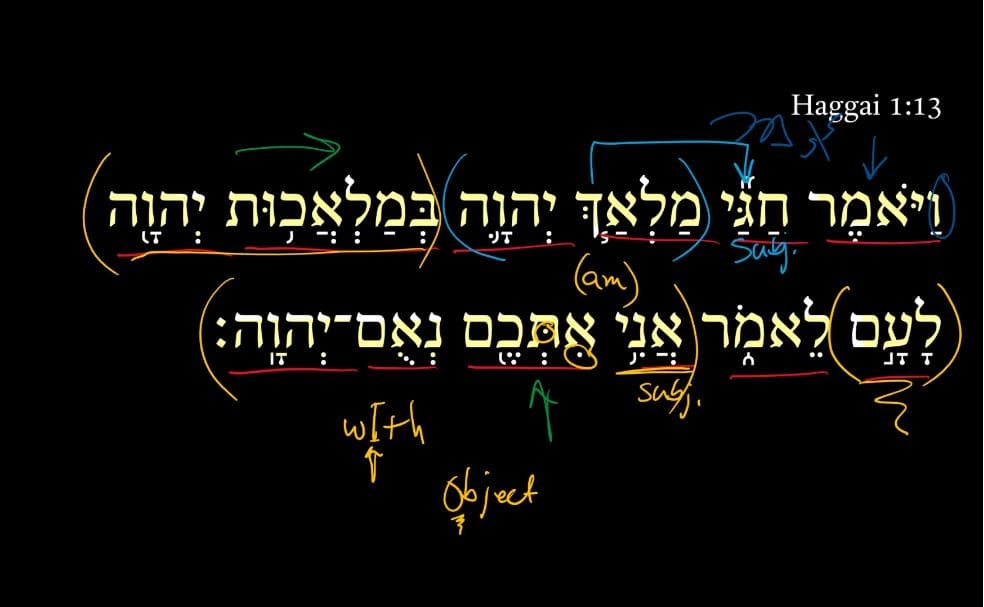 Haggai 1:13
וַ֠יֹּאמֶר חַגַּ֞י מַלְאַ֧ךְ יְהוָ֛ה בְּמַלְאֲכ֥וּת יְהוָ֖ה
subj.
(am)
לָעָ֣ם לֵאמֹ֑ר אֲנִ֥י אִתְּכֶ֖ם נְאֻם־יְהוָֽה׃
subj.
wIth
Object